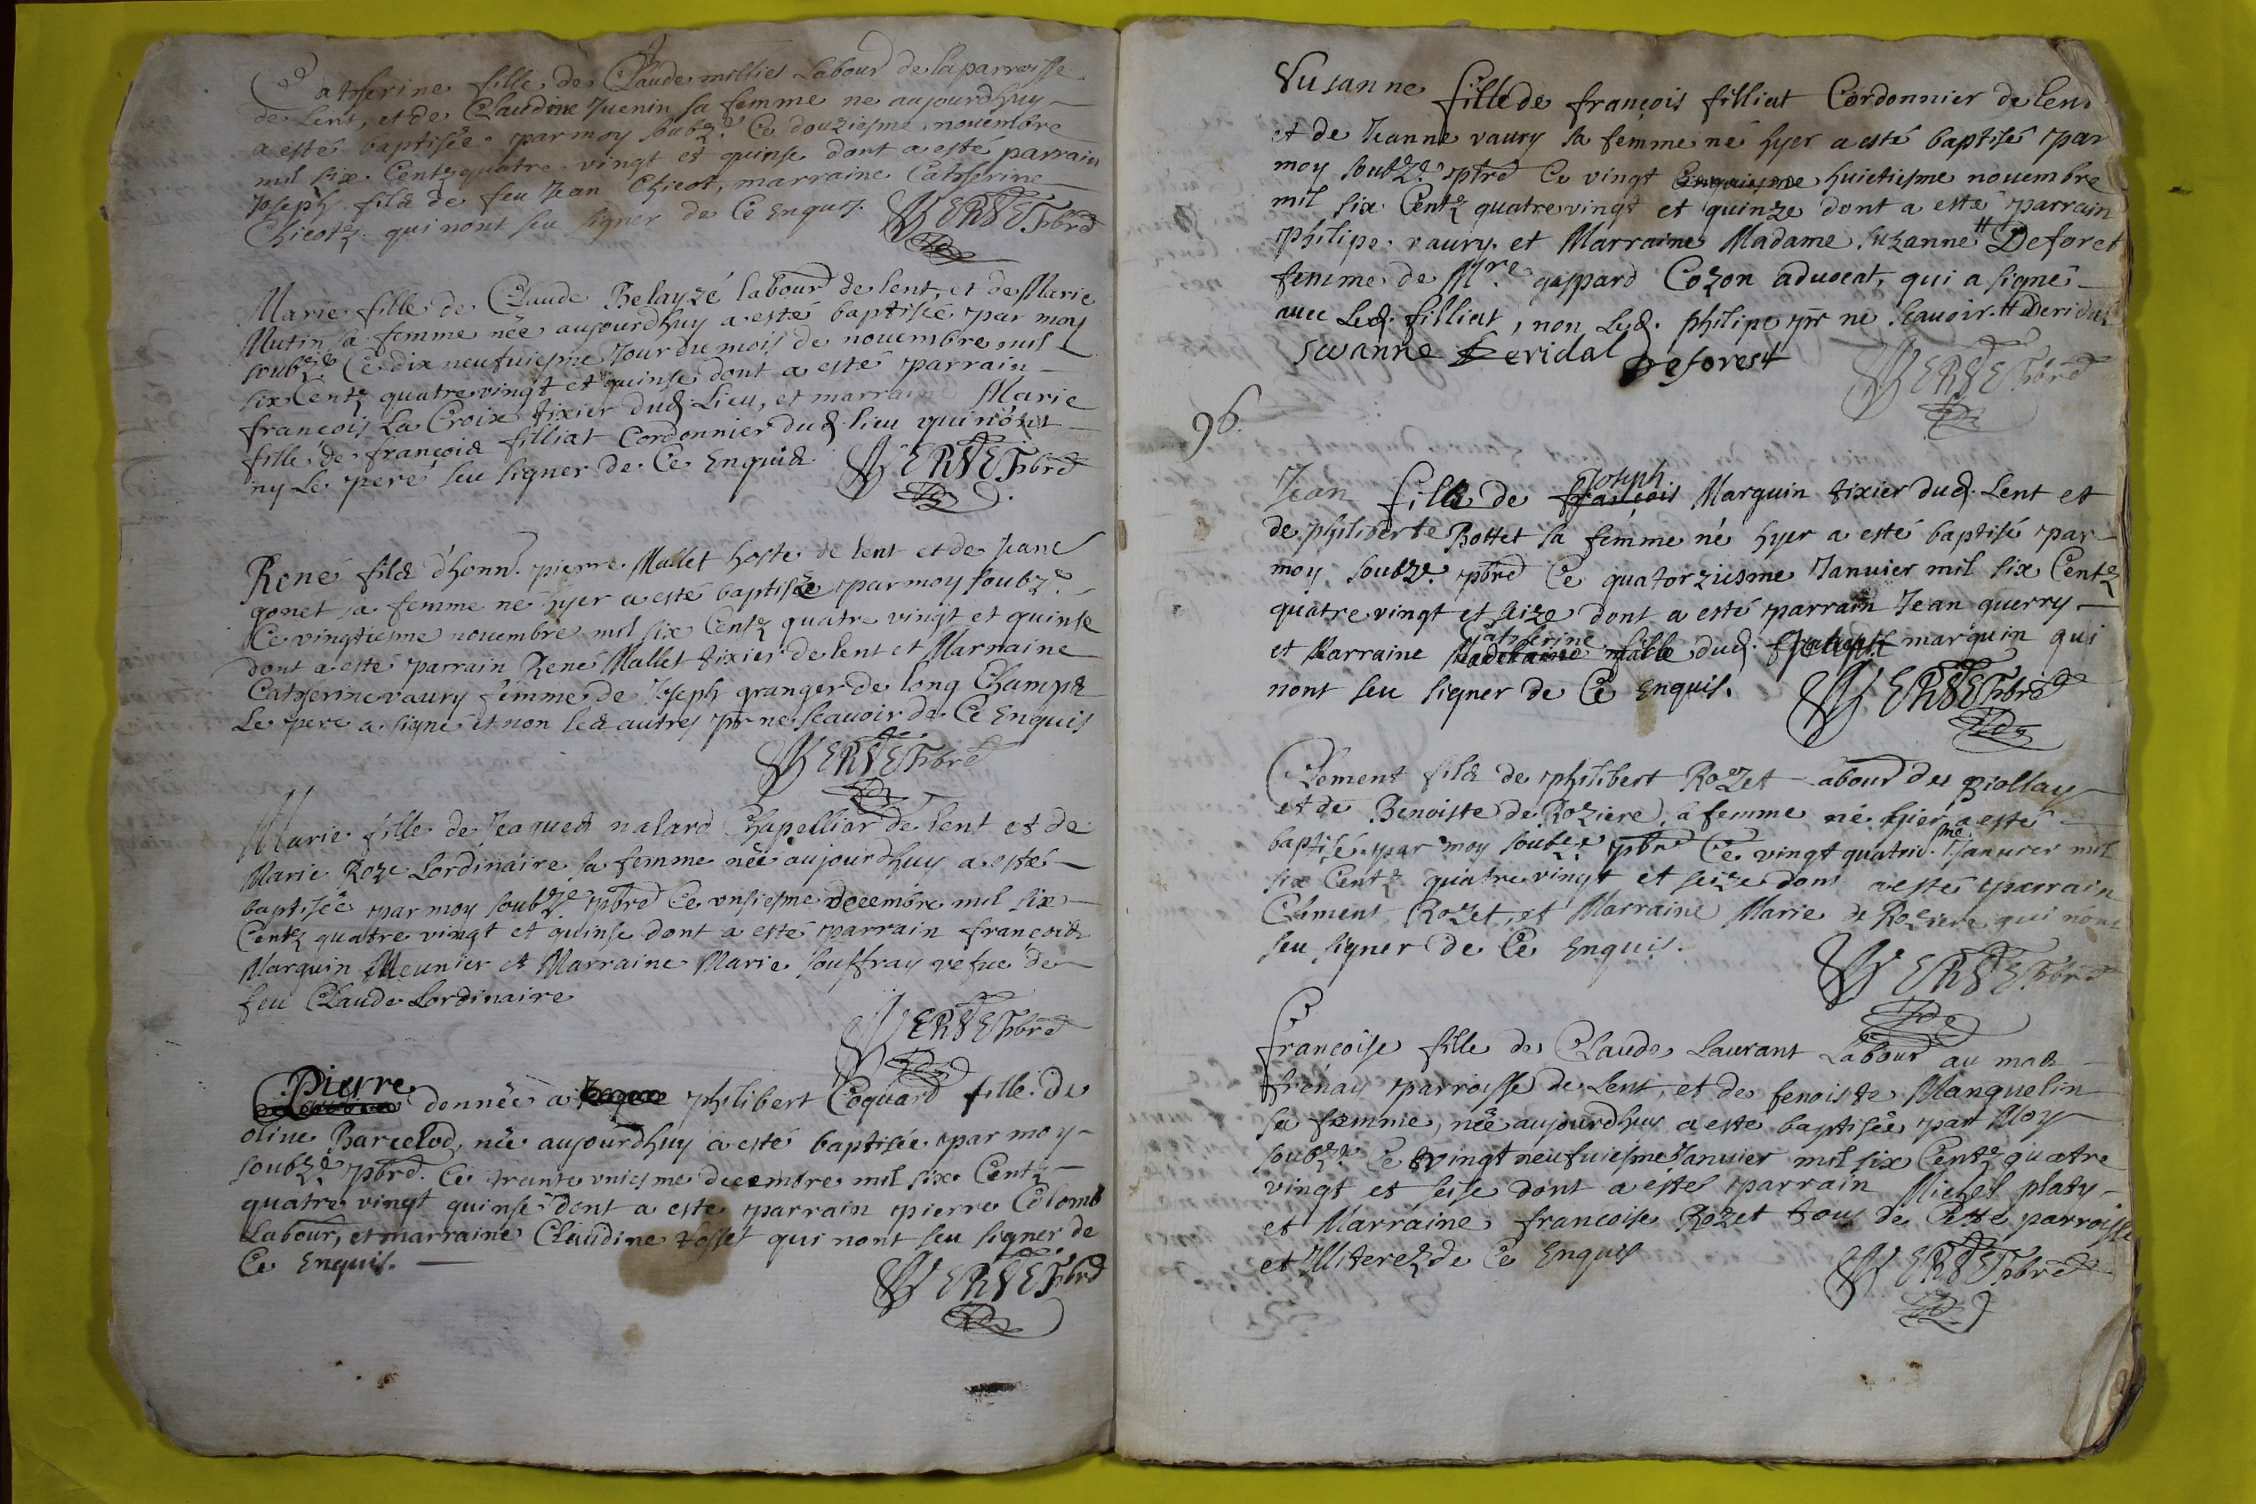 Catherine fille de Claude millies Labour de la parroisse
de Lent, et de Claudine Juenin sa femme ne aujourdhuy
a esté baptisée par moy soubz.é Ce douziesme nouembre
mil six Centz quatre vingt et quinse dont a esté parrain
Joseph filz de feu Jean Chicot, marraine Catherine
Chicotz qui nont seu signer de Ce Enquis. VERVET pbré
Marie fille de Claude Belayzé labour de lent, et de Marie
Mutin sa femme née aujourdhuy a esté baptisée par moy
soubzé Ce dix neufuiesme Jour du mois de nouembre mil
six Centz quatre vingt et quinse dont a esté parrain
francois La Croix tixier dud. Lieu, et marraine Marie
fille de francois filliat Cordonnier dud. lieu qui nont
ny Le pere seu signer de Ce Enquis VERVET pbré
René filz d'honn. pierre Mallet hoste de lent et de Jeane
gonet sa femme né hyer a esté baptisée par moy soubz.é
Ce vingtiesme nouembre mil six Centz quatre vingt et quinse
dont a esté parrain René Mallet tixier de lent et Marraine
Catherine vaury femme de Joseph granger de long Champz
Le pere a signé et non les autres pr ne scauoir de Ce Enquis
VERVET pbré
Marie fille de Jaques nalard Chapellier de lent et de
Marie Roze Lordinaire sa femme née aujourdhuy a esté
baptisée par moy soubz.é pbré Ce unsiesme decembre mil six
Centz quatre vingt et quinse dont a esté parrain francois
Marquin Meunier et Marraine Marie souffray vefue de
feu Claude Lordinaire
VERVET pbré
Pierre
donnée a philibert Coquard fille de
oline Barcelod, née aujourdhuy a esté baptisée par moy
soubzé pbré. Ce trante uniesme decembre mil six Centz
quatre vingt quinse dont a esté parrain pierre Colomb
Labour, et marraine Claudine tosset qui nont seu signer de
Ce Enquis. VERVET pbré
Susanne fille de françois filliat Cordonnier de lent
et de Jeanne vaury sa femme né hyer a esté baptisé par
moy soubz.é pbré Ce vingt huictiesme nouembre
mil six Centz quatre vingt et quinze dont a esté parrain
philipe vaury et Marraine Madame suzanne # Deforet
femme de Mre. gaspard Cozon aduocat, qui a signé
auec Led. filliat, non Led. philipe pr ne scauoir. # Deridal
suzanne Deridal Deforest
VERVET pbré
96.
Joseph
Jean filz de françois Marquin tixier dud. Lent et
de philiberte Bottet sa femme né hyer a esté baptisé par
moy soubz.é pbré Ce quatorziesme Januier mil six Centz
quatre vingt et seize dont a esté parrain Jean guerry
Catherine
et Marraine Madelaine fille dud. Joseph marquin qui
nont seu signer de Ce Enquis. VERVET pbré
Clement filz de philibert Rozet Labour du piollay
et de Benoiste de Roziere sa femme né hyer a esté
baptisé par moy soubzé pbré Ce vingt quatrie.sme Januier mil
six Centz quatre vingt et seize dont a esté parrain
Clément Rozet, et Marraine Marie de Roziere qui nont
seu signer de Ce Enquis.
VERVET pbré
françoise fille de Claude Laurant Labour au mas
frenay parroisse de Lent, et de fenoiste Manquelin
sa femme, née aujourdhuy a esté baptisée par Moy
soubz.é Ce vingt neufuiesme Januier mil six Centz quatre
vingt et seise dont a esté parrain Michel platy
et Marraine francoise Rozet tous de Cette parroisse
et Illiterez de Ce Enquis VERVET pbré